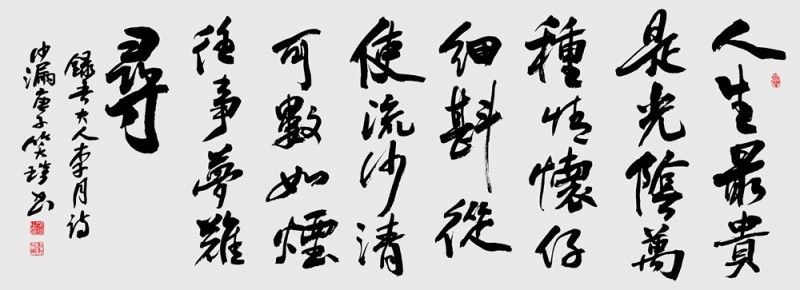 人生最貴
是光陰萬
種情懷仔
細斟從
使流沙清
可數如煙
往事夢難
尋
錄吉大人李月诗
沙漏庚子笑书